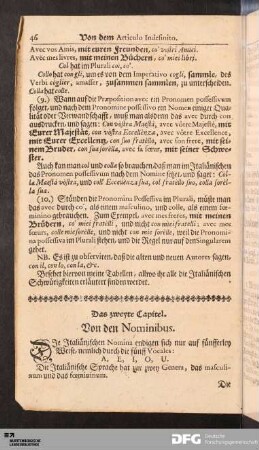 46 Von dem Articulo Indefinito.
Avec vos Amis, mit euren Freunden, co' vostri Amici.
Avec mes livres, mit meinen Büchern, co' miei libri.
Col hat im Plurali coi, co'.
Collo hat con gli, um es von dem Imperativo cogli, sammle, des
Verbi cogliere, amasser, zusammen sammlen, zu unterscheiden.
Colla hat colle.
(9.) Wann auf die Præposition avec ein Pronomen possessivum
folget, und nach dem Pronomine possessivo ein Nomen einiger Qua-
lität oder Verwandschafft, muß man alsdenn das avec durch con
ausdrucken, und sagen: con vostra Maestà, avec vôtre Majesté, mit
Eurer Majestät, con vostra Eccellenza, avec vôtre Excellence,
mit Eurer Excellenz, con suo fratello, avec son frere, mit sei-
nem Bruder, con sua sorella, avec sa sœur, mit seiner Schwe-
ster.
Auch kan man col und colla so brauchen, daß man im Italiänischen
das Pronomen possessivum nach dem Nomine setzet, und saget: Col-
la Maestà vostra, und coll' Eccellenza sua, col fratello suo, colla sorel-
la sua.
(10.) Stünden die Pronomina Possessiva im Plurali, müste man
das avec durch co', als einem masculino, und colle, als einem fœ-
minino gebrauchen. Zum Exempel, avec mes freres, mit meinen
Brüdern, co' miei fratelli, und nicht con miei fratelli: avec mes
sœurs, colle mie sorelle, und nicht con mie sorelle, weil die Pronomi-
na possessiva im Plurali stehen, und die Regel nur auf den Singularem
gehet.
NB. Es ist zu observiren, daß die alten und neuen Autores sagen,
con il, con lo, con la, &c.
Besehet hiervon meine Tabellen, allwo ihr alle die Italiänischen
Schwürigkeiten erläutert finden werdet.
Das zweyte Capitel.
Von den Nominibus.
Die Italiänischen Nomina endigen sich nur auf fünfferley
Weise, nemlich durch die fünff Vocales:
A, E, I, O, U.
Die Italiänische Sprache hat nur zwey Genera, das masculi-
num und das fœmininum.
Die
DFG Deutsche
Forschungsgemeinschaft